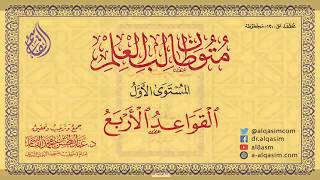 متون طالب العلم
المستوى الأول
القواعد الأربع
جمع وترتيب وتحقيق
د. عبد المحسن بن محمد القاسم
@alqasimcom
dr.alqasim
al8asm
a-alqasim.com